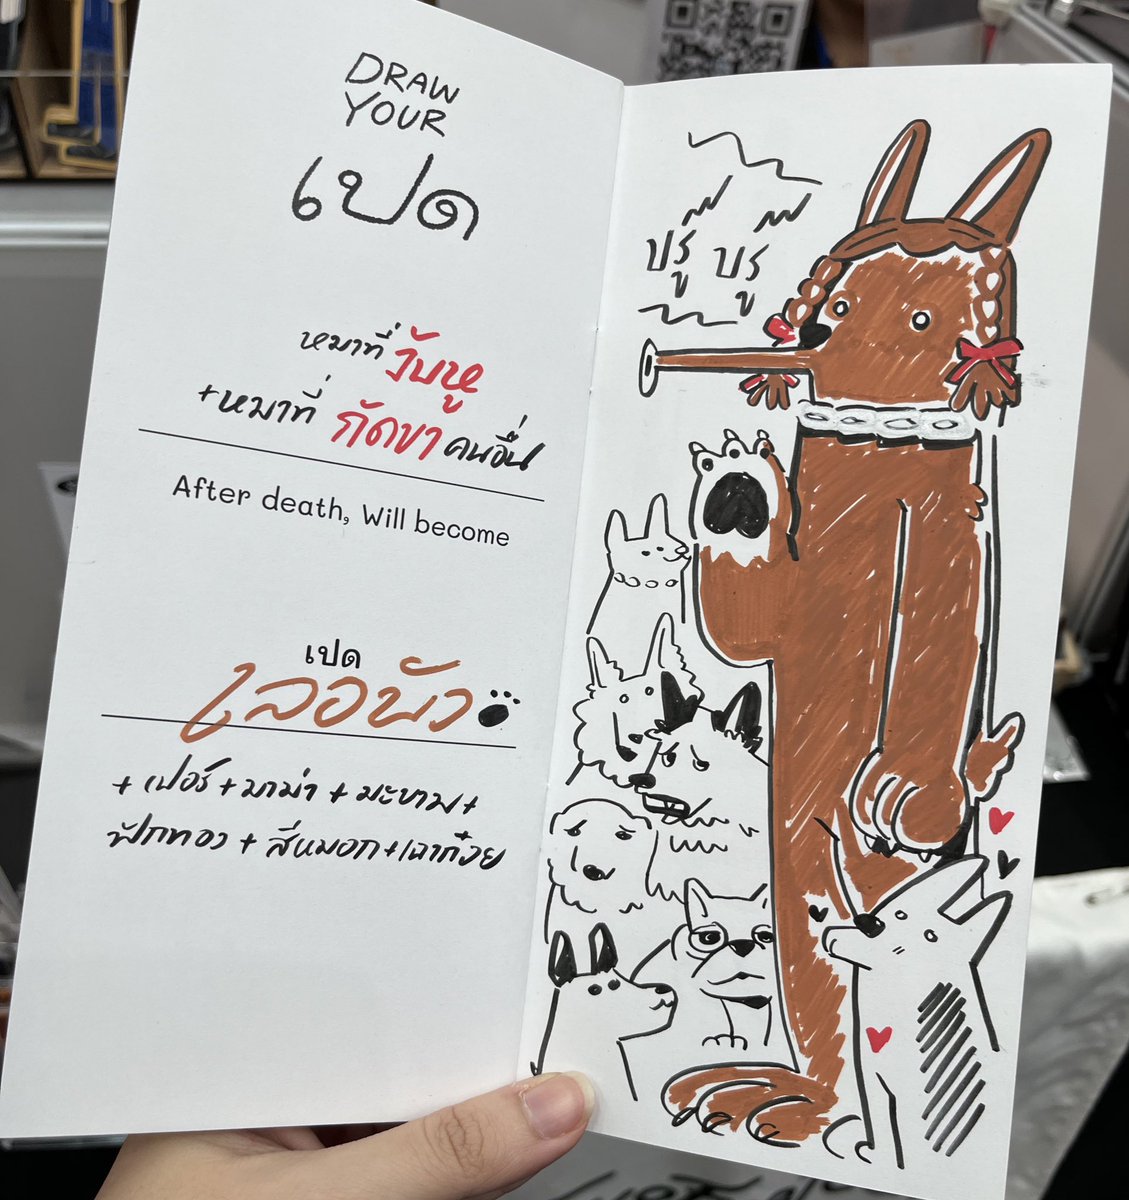 DRAW
YOUR
เปด
หมาที่ งับหู
+หมาที่ กัดขา คนอื่น
After death, Will become
เปด
เลอบัว
+ เปอร์ + มาม่า + มะขาม +
ฟักทอง + สีหมอก + เฉาก๊วย
ปรู ปรู